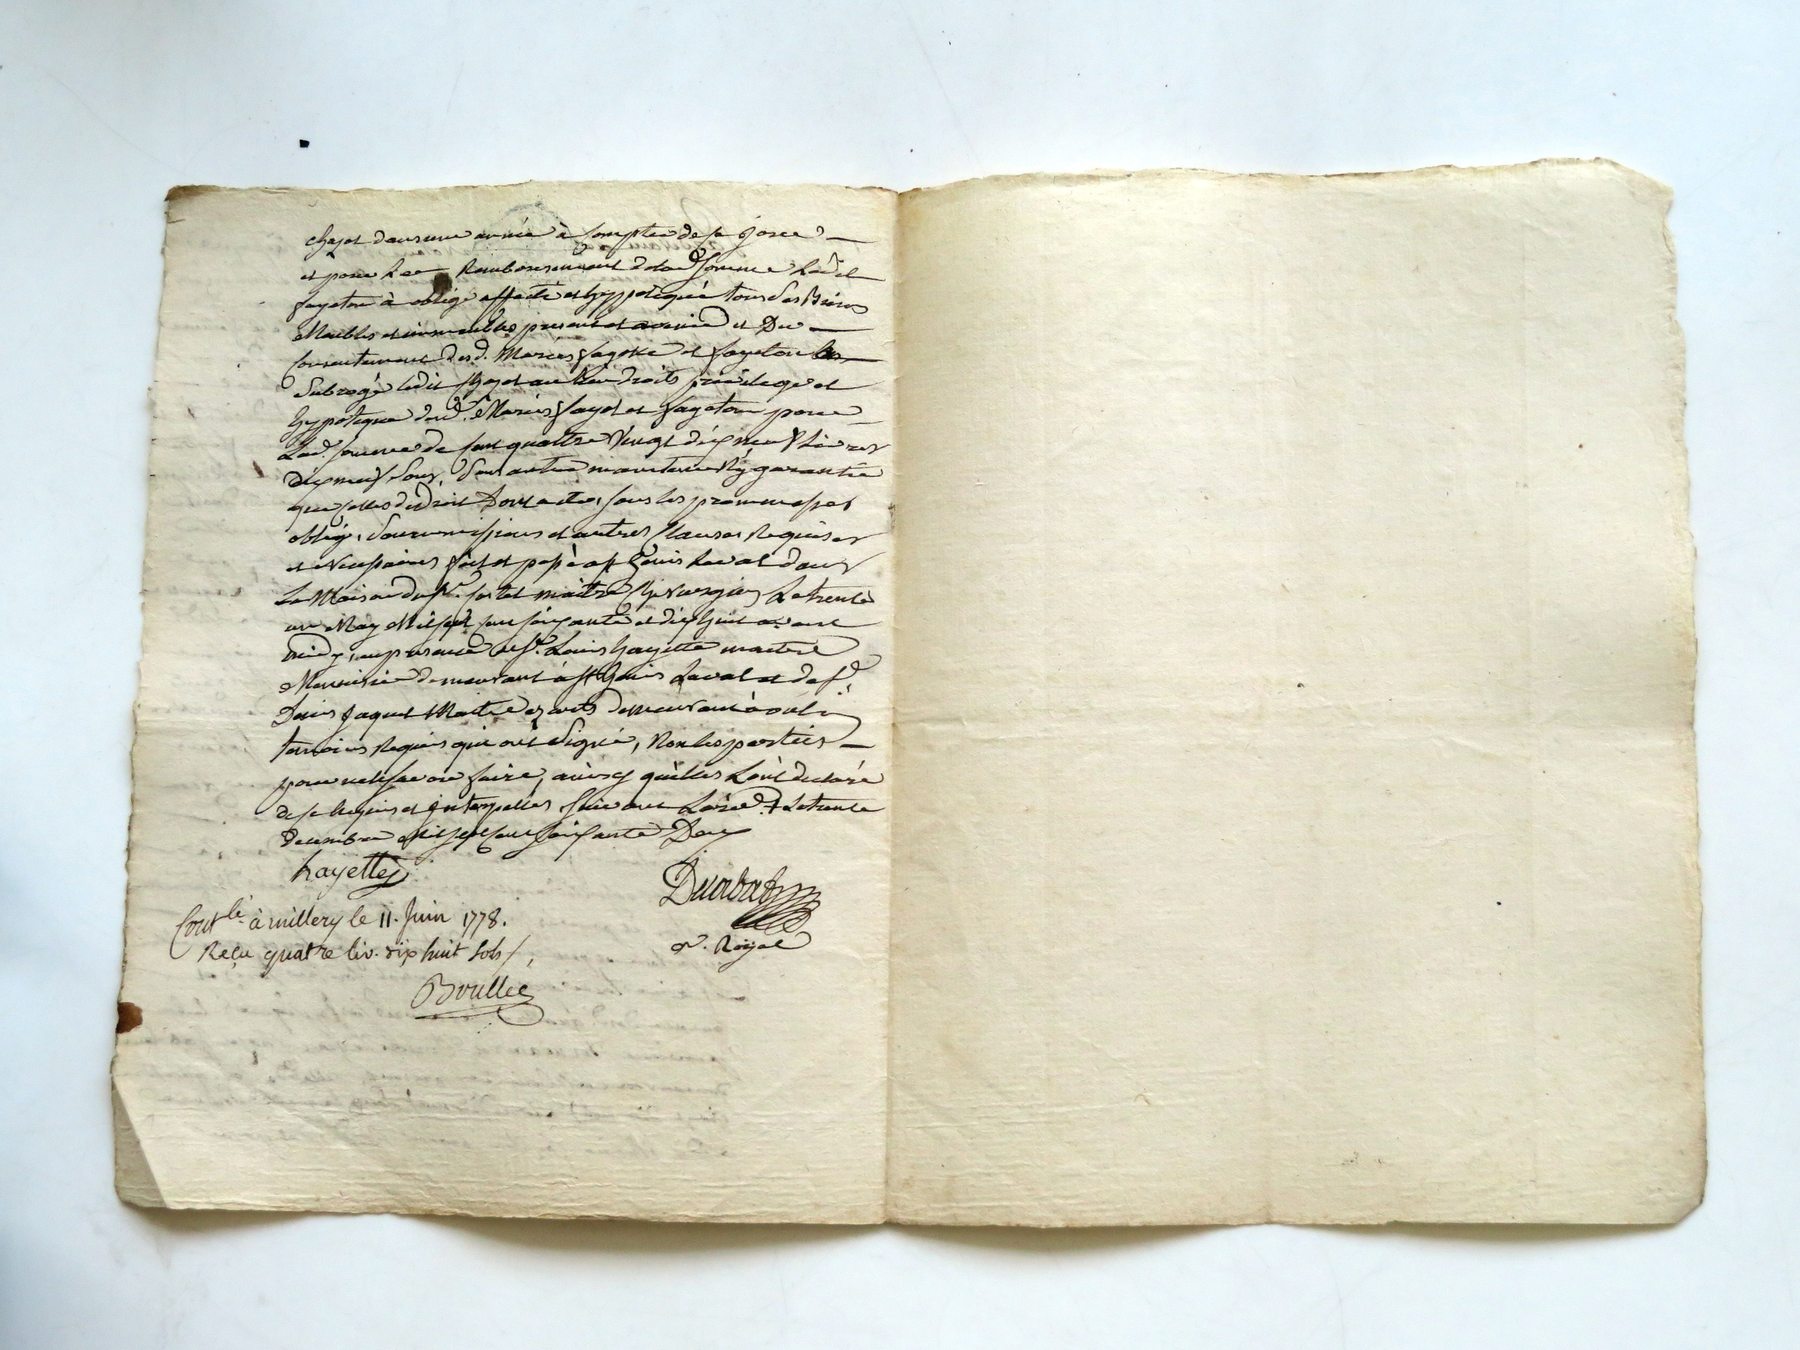 chazot dans une année à compter de ce jour
et pour le Remboursement delad. somme led.
fayeton à obligé affecté et hyppotequé tous ses Biens
Meubles et immeubles present et avenir et Du
Consentement desd. Mariés fayolle et fayeton
Subrogé ledit chazot au lieu droits privilege et
hyppoteque desd. Mariés et fayeton pour
Lad. somme de cent quattre vingt dix neuf Livres
dix neuf sous, Sans autre maintenue ny garantie
que celles de droit Dont acte, sous les promesses
oblig. Soumissions et autres Clauses Requises
et necessaires fait et passé a st Genis Laval dans
La Maison du sr. maitre Chirurgien Le trente
un May Mil sept cent soixante et dix huit avant
midy, en presence de sr. Louis hayette maitre
Menuisier demeurant à st Genis Laval et de sr.
Denis Jaquet Maitre es arts demeurant à oulin
temoins Requis qui ont signé, Non les parties
pour ne le sçavoir faire, ainsy qu'elles l'ont declaré
de ce Requis et interpellés suivant L'ord. + Le trente
decembre Mil sept cent soixante Deux
hayette
Duabat
Contlé. à millery le 11. Juin 1778.
Reçu quatre liv. dix huit sols
Boullee